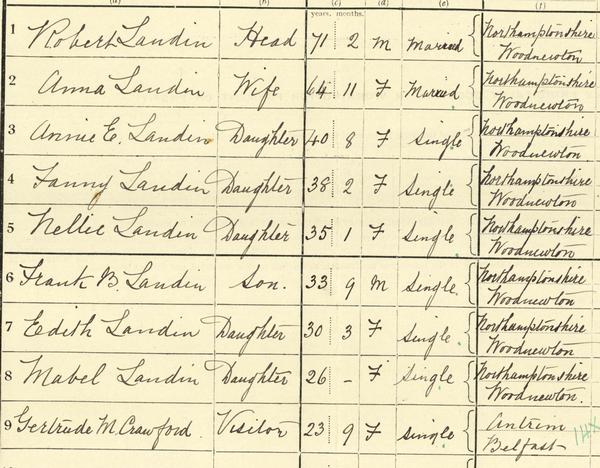 (a) (b) (c) (d) (e) (f)
years. months.
1 Robert Landin Head 71 2 M Married { Northamptonshire
Woodnewton
2 Anna Landin Wife 64 11 F Married { Northamptonshire
Woodnewton
3 Annie E. Landin Daughter 40 8 F Single { Northamptonshire
Woodnewton
4 Fanny Landin Daughter 38 2 F Single { Northamptonshire
Woodnewton
5 Nellie Landin Daughter 35 1 F Single { Northamptonshire
Woodnewton
6 Frank B. Landin Son. 33 9 M Single. { Northamptonshire
Woodnewton
7 Edith Landin Daughter 30 3 F Single { Northamptonshire
Woodnewton
8 Mabel Landin Daughter 26 - F Single { Northamptonshire
Woodnewton.
9 Gertrude M. Crawford. Visitor 23 9 F Single { Antrim
Belfast